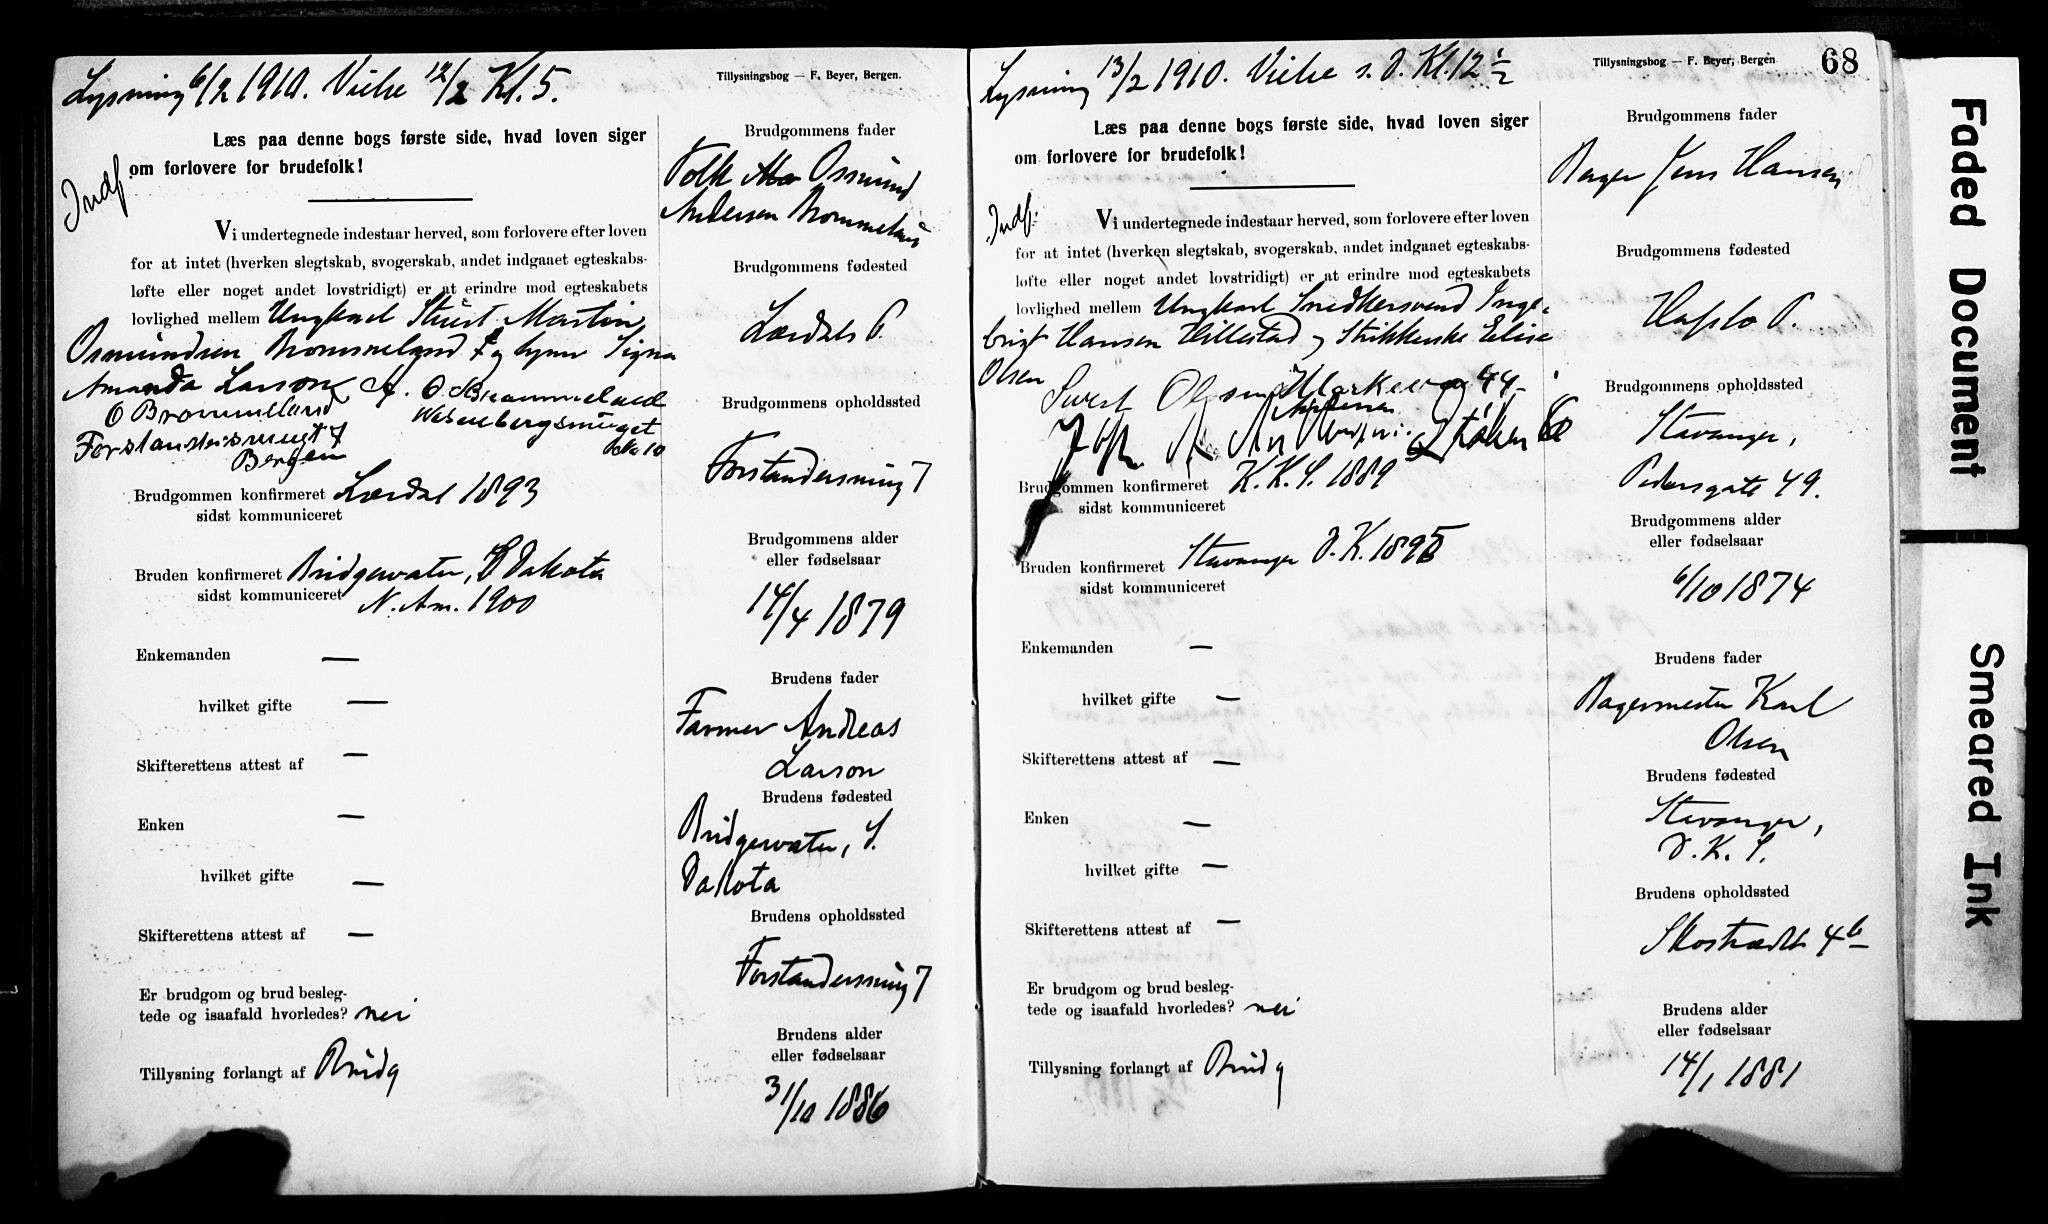 Lysning 6/2 1910. Vielse 12/2 Kl. 5.
Tillysningsbog — F. Beyer, Bergen.
Læs paa denne bogs første side, hvad loven siger
om forlovere for brudefolk!
Indf.
Vi undertegnede indestaar herved, som forlovere efter loven
for at intet (hverken slegtskab, svogerskab, andet indgaaet egteskabs-
løfte eller noget andet lovstridigt) er at erindre mod egteskabets
lovlighed mellem Ungkarl Stuert Martin
Osmundsen Brommeland & Pige Signe
Amanda Larson
O Brommeland
Forstandersmuget 7
Bergen
A. O. Brommeland
Wesenbergsmuget
No 10
Brudgommen konfirmeret Lærdal 1893
sidst kommuniceret
Bruden konfirmeret Bridgewater, S Dakota
sidst kommuniceret N. Am. 1900
Enkemanden —
hvilket gifte —
Skifterettens attest af —
Enken —
hvilket gifte —
Skifterettens attest af —
Er brudgom og brud besleg-
tede og isaafald hvorledes? nei
Tillysning forlangt af Brudg
Brudgommens fader
Tolk Osmund
Andersen Brommeland
Brudgommens fødested
Lærdals P.
Brudgommens opholdssted
Forstandersmug 7
Brudgommens alder
eller fødselsaar
14/4 1879
Brudens fader
Farmer Andreas
Larson
Brudens fødested
Bridgewater, S.
Dakota
Brudens opholdssted
Forstandersmug 7
Brudens alder
eller fødselsaar
31/10 1886
Lysning 13/2 1910. Vielse s. D. Kl. 12 1/2
Tillysningsbog — F. Beyer, Bergen
68
Læs paa denne bogs første side, hvad loven siger
om forlovere for brudefolk!
Indf.
Vi undertegnede indestaar herved, som forlovere efter loven
for at intet (hverken slegtskab, svogerskab, andet indgaaet egteskabs-
løfte eller noget andet lovstridigt) er at erindre mod egteskabets
lovlighed mellem Ungkarl Snedkersvend Inge-
brigt Hansen Hillestad og Strikkerske Elise
Olsen
Sivert Olsen 44
Brudgommen konfirmeret K. K. S. 1889
sidst kommuniceret
Bruden konfirmeret Stavanger D. K. 1895
sidst kommuniceret
Enkemanden —
hvilket gifte —
Skifterettens attest af —
Enken —
hvilket gifte —
Skifterettens attest af —
Er brudgom og brud besleg-
tede og isaafald hvorledes? nei
Tillysning forlangt af Brudg
Brudgommens fader
Bager Jens Hansen
Brudgommens fødested
Hafslo P.
Brudgommens opholdssted
Stavanger,
Pedersgate 49.
Brudgommens alder
eller fødselsaar
6/10 1874
Brudens fader
Bagermester Karl
Olsen
Brudens fødested
Stavanger,
D. K. S.
Brudens opholdssted
Skostrædet 4b
Brudens alder
eller fødselsaar
14/1 1881
Faded Document
Smeared Ink